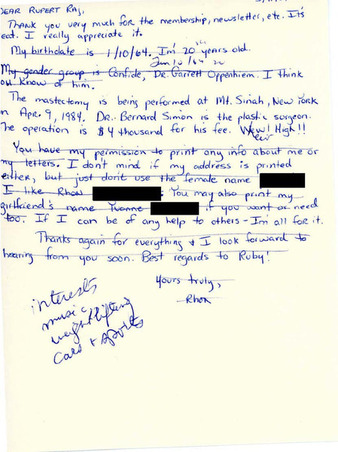 DEAR RUPERT RAJ,
Thank you very much for the membership, newsletter, etc. It's
I really appreciate it.
My birthdate is 1/10/64. I'm 20 years old.
Jan 10/64 20
My gender group is Confide, Dr. Garrett Oppenheim. I think
know of him.
The mastectomy is being performed at Mt. Sinah, New York
on Apr. 9, 1984. Dr. Bernard Simon is the plastic surgeon.
The operation is $4 thousand for his fee. Wow! High!!
You have my permission to print any info about me or
my letters. I don't mind if my address is printed
either, but just don't use the female name
I like Rhon. You may also print my
girlfriend's name Yvonne if you want or need
too. If I can be of any help to others - I'm all for it.
Thanks again for everything & I look forward to
hearing from you soon. Best regards to Ruby!
Yours truly,
Rhon
interests
music
weightlifting
cars + sports